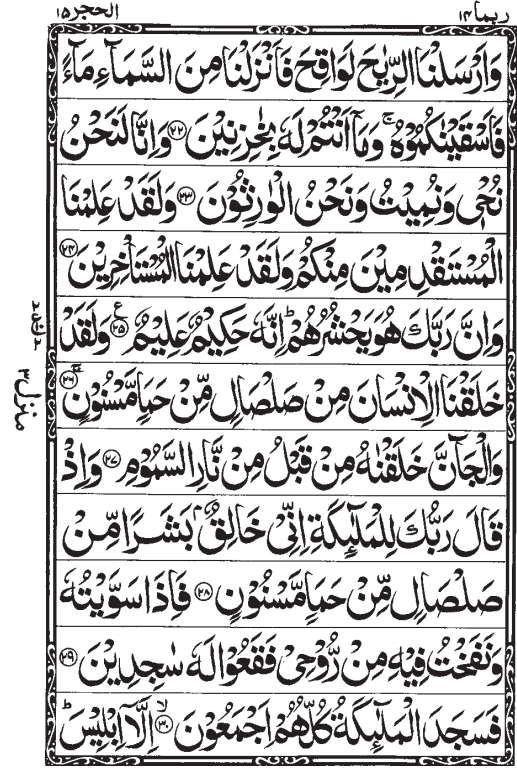 ربما ١٤
الحجر ١٥
وَاَرْسَلْنَا الرِّيٰحَ لَوَاقِحَ فَاَنْزَلْنَا مِنَ السَّمَآءِ مَآءً
فَاَسْقَيْنٰكُمُوْهُ ۚ وَمَآ اَنْتُمْ لَهٗ بِخٰزِنِيْنَ ﴿٢٢﴾ وَاِنَّا لَنَحْنُ
نُحْيٖ وَنُمِيْتُ وَنَحْنُ الْوٰرِثُوْنَ ﴿٢٣﴾ وَلَقَدْ عَلِمْنَا
الْمُسْتَقْدِمِيْنَ مِنْكُمْ وَلَقَدْ عَلِمْنَا الْمُسْتَاْخِرِيْنَ ﴿٢٤﴾
وَاِنَّ رَبَّكَ هُوَ يَحْشُرُهُمْ ؕ اِنَّهٗ حَكِيْمٌ عَلِيْمٌ ﴿٢٥﴾ ع وَلَقَدْ
خَلَقْنَا الْاِنْسَانَ مِنْ صَلْصَالٍ مِّنْ حَمَاٍ مَّسْنُوْنٍ ﴿٢٦﴾ ۚ
وَالْجَآنَّ خَلَقْنٰهُ مِنْ قَبْلُ مِنْ نَّارِ السَّمُوْمِ ﴿٢٧﴾ وَاِذْ
قَالَ رَبُّكَ لِلْمَلٰٓئِكَةِ اِنِّيْ خَالِقٌۢ بَشَرًا مِّنْ
صَلْصَالٍ مِّنْ حَمَاٍ مَّسْنُوْنٍ ﴿٢٨﴾ فَاِذَا سَوَّيْتُهٗ
وَنَفَخْتُ فِيْهِ مِنْ رُّوْحِيْ فَقَعُوْا لَهٗ سٰجِدِيْنَ ﴿٢٩﴾
فَسَجَدَ الْمَلٰٓئِكَةُ كُلُّهُمْ اَجْمَعُوْنَ ﴿٣٠﴾ ۙ اِلَّآ اِبْلِيْسَ ؕ
منزل ٣